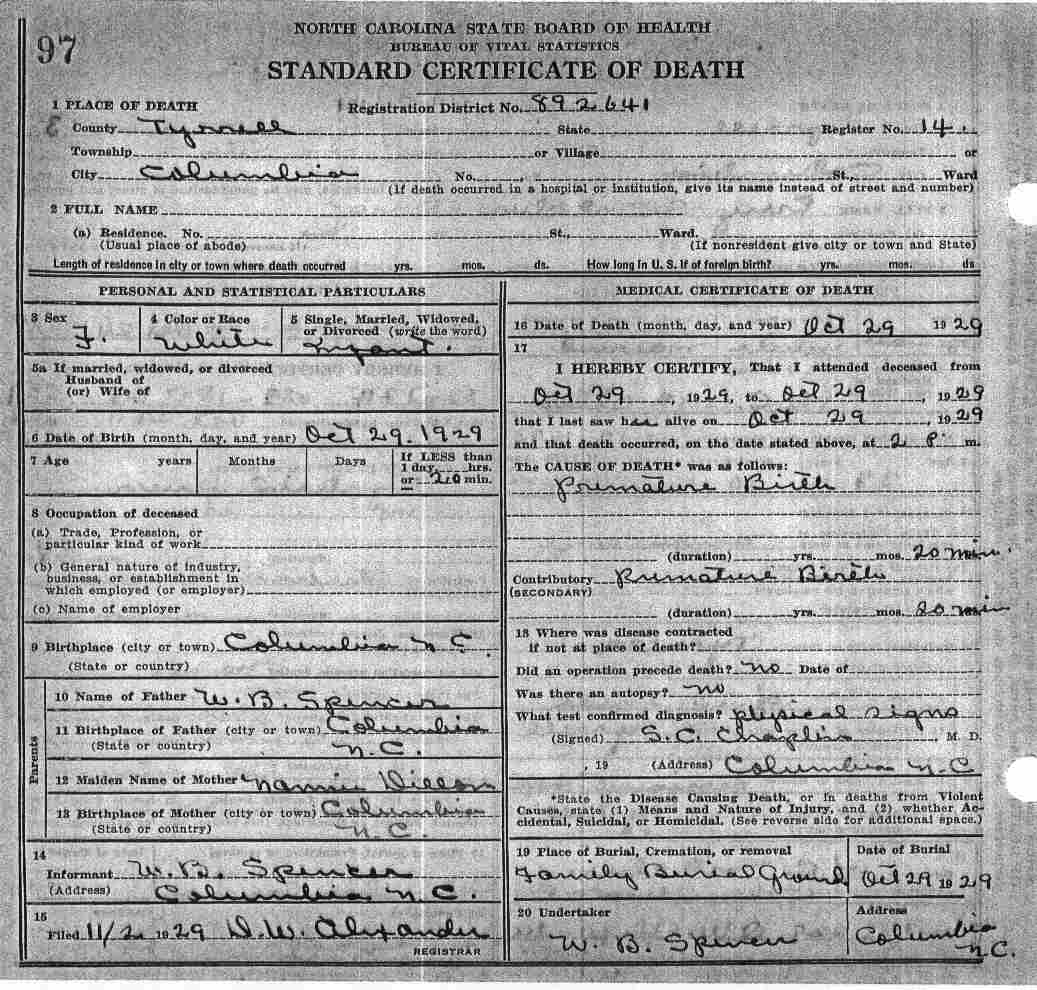 97
NORTH CAROLINA STATE BOARD OF HEALTH
BUREAU OF VITAL STATISTICS
STANDARD CERTIFICATE OF DEATH
1 PLACE OF DEATH Registration District No. 892641
County Tyrrell State Register No. 14
Township or Village or
City Columbia No. , St., Ward
(If death occurred in a hospital or institution, give its name instead of street and number)
2 FULL NAME
(a) Residence. No. St., Ward.
(Usual place of abode) (If nonresident give city or town and State)
Length of residence in city or town where death occurred yrs. mos. ds. How long in U. S. if of foreign birth? yrs. mos. ds
PERSONAL AND STATISTICAL PARTICULARS
3 Sex
F.
4 Color or Race
White
5 Single, Married, Widowed,
or Divorced (write the word)
Infant.
5a If married, widowed, or divorced
Husband of
(or) Wife of
6 Date of Birth (month, day, and year) Oct 29. 1929
7 Age years Months Days
If LESS than
1 day, hrs.
or 20 min.
8 Occupation of deceased
(a) Trade, Profession, or
particular kind of work
(b) General nature of industry,
business, or establishment in
which employed (or employer)
(c) Name of employer
9 Birthplace (city or town) Columbia N C.
(State or country)
Parents
10 Name of Father W. B. Spencer
11 Birthplace of Father (city or town) Columbia
(State or country) N.C.
12 Maiden Name of Mother Nannie Dillon
13 Birthplace of Mother (city or town) Columbia
(State or country) N C
14
Informant W. B. Spencer
(Address) Columbia N C.
15
Filed 11/2 1929 D. W. Alexander
REGISTRAR
MEDICAL CERTIFICATE OF DEATH
16 Date of Death (month, day, and year) Oct 29 1929
17
I HEREBY CERTIFY, That I attended deceased from
Oct 29, 1929, to Oct 29, 1929
that I last saw her alive on Oct 29, 1929
and that death occurred, on the date stated above, at 2 P. m.
The CAUSE OF DEATH* was as follows:
Premature Birth
(duration) yrs. mos. 20 min.
Contributory Premature Birth
(SECONDARY)
(duration) yrs. mos. 20 min
18 Where was disease contracted
if not at place of death?
Did an operation precede death? No Date of
Was there an autopsy? no
What test confirmed diagnosis? physical signs
(Signed) S. C. Chaplin, M. D.
, 19 (Address) Columbia N.C
*State the Disease Causing Death, or in deaths from Violent
Causes, state (1) Means and Nature of Injury, and (2) whether Ac-
cidental, Suicidal, or Homicidal. (See reverse side for additional space.)
19 Place of Burial, Cremation, or removal
Family Burial Ground
Date of Burial
Oct 29 1929
20 Undertaker
W. B. Spencer
Address
Columbia
N.C.